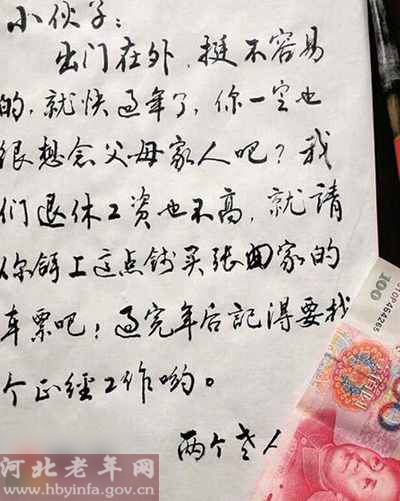 小伙子：
出门在外，挺不容易
的，就快过年了，你一定也
很想念父母家人吧？我
们退休工资也不高，就請
你領上这点钱买张回家的
车票吧！过完年后記得要找
个正經工作哟。
两个老人
100
河北老年网
www.hbyinfa.gov.cn